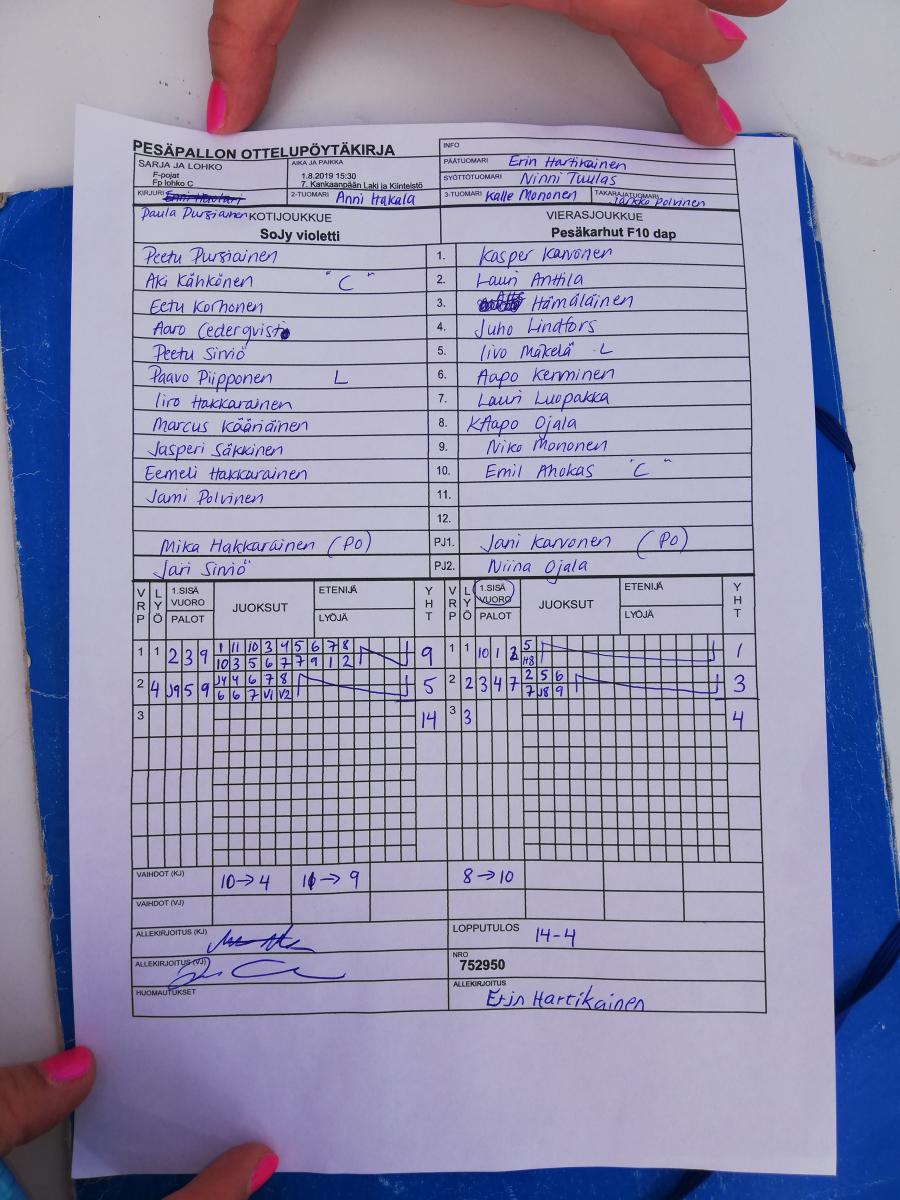 PESÄPALLON OTTELUPÖYTÄKIRJA
INFO
SARJA JA LOHKO
F-pojat
Fp lohko C
AIKA JA PAIKKA
1.8.2019 15:30
7. Kankaanpään Laki ja Kiinteistö
PÄÄTUOMARI Erin Hartikainen
SYÖTTÖTUOMARI Ninni Tuulas
KIRJURI
2-TUOMARI Anni Hakala
3-TUOMARI Kalle Mononen
TAKARAJATUOMARI Jarkko Polvinen
Paula Pursiainen
KOTIJOUKKUE
SoJy violetti
VIERASJOUKKUE
Pesäkarhut F10 dap
Peetu Pursiainen 1. Kasper Karvonen
Aki Kähkönen "C" 2. Lauri Anttila
Eetu Korhonen 3. Hämäläinen
Aaro Cederqvist 4. Juho Lindfors
Peetu Sirviö 5. Iivo Mäkelä L
Paavo Piipponen L 6. Aapo Kerminen
Iiro Hakkarainen 7. Lauri Luopakka
Marcus Kääriäinen 8. Ojala
Jasperi Säkkinen 9. Niko Mononen
Eemeli Hakkarainen 10. Emil Ahokas "C"
Jami Polvinen 11.
12.
Mika Hakkarainen (PO) PJ1. Jani Karvonen (PO)
Jari Sirviö PJ2. Niina Ojala
VRP LYÖ 1.SISÄ VUORO PALOT JUOKSUT ETENIJÄ LYÖJÄ YHT VRP LYÖ 1.SISÄ VUORO PALOT JUOKSUT ETENIJÄ LYÖJÄ YHT
1 1 2 3 9 1 11 10 3 4 5 6 7 8 9 1 1 10 1 2 5 1
10 3 5 6 7 7 9 1 2 H8
2 4 J9 5 9 J4 4 6 7 8 5 2 2 3 4 7 2 5 6 3
6 6 7 V1 V2 7 J8 9
3 14 3 3 4
VAIHDOT (KJ) 10→4 →9 8→10
VAIHDOT (VJ)
ALLEKIRJOITUS (KJ)
LOPPUTULOS 14-4
ALLEKIRJOITUS (VJ)
NRO
752950
HUOMAUTUKSET
ALLEKIRJOITUS
Erin Hartikainen